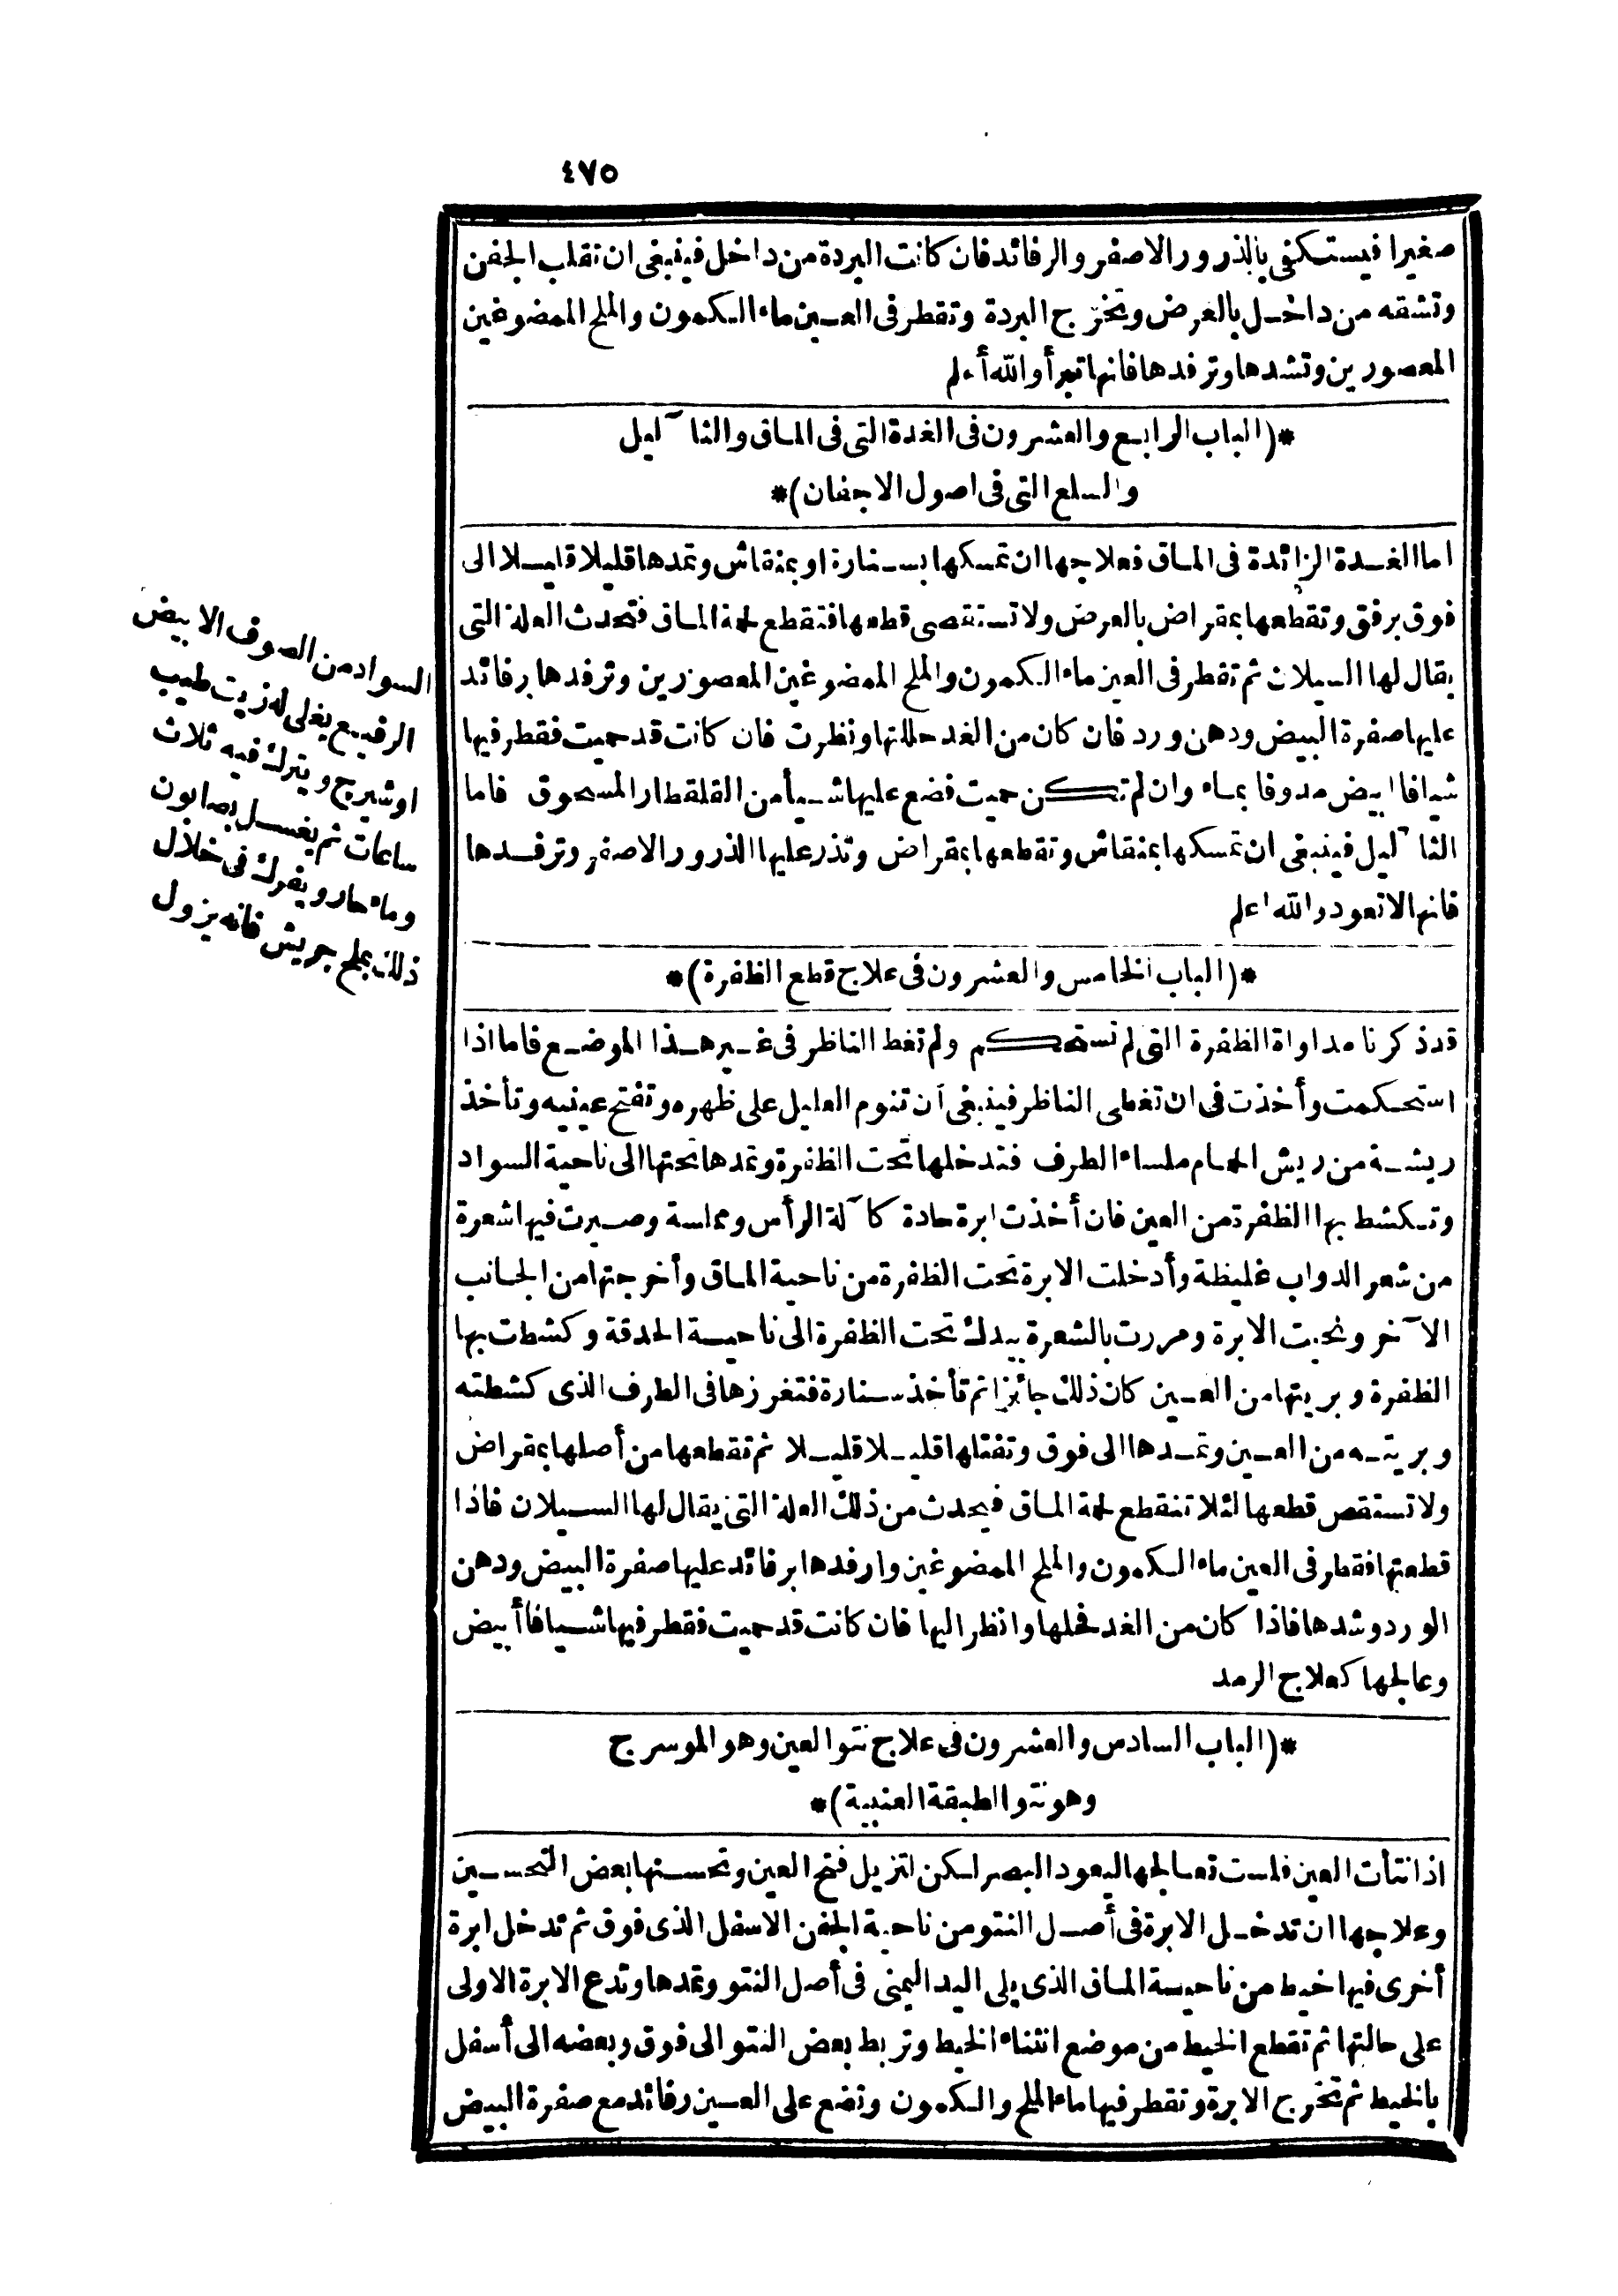 ٤٧٥
صغيرا فيستكفى بالذرور الاصفر والرفائد فان كانت البردة من داخل فينبغى ان تقلب الجفن
وتشقه من داخل بالعرض ويخرج البردة وتقطر فى العين ماء الكمون والملح الممضوغين
المعصورين وتشدها وترفدها فانها تبرأ والله أعلم
*(الباب الرابع والعشرون فى الغدة التى فى الماق والثا آليل
والسلع التى فى اصول الاجفان)*
اما الغدة الزائدة فى الماق فعلاجها ان تمسكها بسنارة او بمنقاش وتمدها قليلا قليلا الى
فوق برفق وتقطعها بمقراض بالعرض ولا تستقصى قطعها فتقطع لحمة الماق فتحدث العلة التى
يقال لها السيلان ثم تقطر فى العين ماء الكمون والملح الممضوغين المعصورين وترفدها برفائد
عليها صفرة البيض ودهن ورد فان كان من الغد حللتها ونظرت فان كانت قد حميت فقطر فيها
شيافا ابيض مدوفا بماء وان لم تكن حميت فضع عليها شيأ من القلقطار المسحوق فاما
الثا آليل فينبغى ان تمسكها بمنقاش وتقطعها بمقراض وتذر عليها الذرور الاصفر وترفدها
فانها لا تعود والله اعلم
*(الباب الخامس والعشرون فى علاج قطع الظفرة)*
قد ذكرنا مداواة الظفرة التى لم تستحكم ولم تغط الناظر فى غير هذا الموضع فاما اذا
استحكمت وأخذت فى ان تغطى الناظر فينبغى أن تنوم العليل على ظهره وتفتح عينيه وتأخذ
ريشة من ريش الحمام ملساء الطرف فتدخلها تحت الظفرة وتمدها تحتها الى ناحية السواد
وتكشط بها الظفرة من العين فان أخذت ابرة حادة كآلة الرأس ومماسة وصيرت فيها شعرة
من شعر الدواب غليظة وأدخلت الابرة تحت الظفرة من ناحية الماق وأخرجتها من الجانب
الآخر ونحيت الابرة ومررت بالشعرة بيدك تحت الظفرة الى ناحية الحدقة وكشطت بها
الظفرة وبريتها من العين كان ذلك جائزا ثم تأخذ سنارة فتغرزها فى الطرف الذى كشطته
وبريته من العين وتمدها الى فوق وتفتلها قليلا قليلا ثم تقطعها من أصلها بمقراض
ولا تستقص قطعها لئلا تنقطع لحمة الماق فيحدث من ذلك العلة التى يقال لها السيلان فاذا
قطعتها فقطر فى العين ماء الكمون والملح الممضوغين وارفدها برفائد عليها صفرة البيض ودهن
الورد وشدها فاذا كان من الغد فحلها وانظر اليها فان كانت قد حميت فقطر فيها شيافا أبيض
وعالجها كعلاج الرمد
*(الباب السادس والعشرون فى علاج نتو العين وهو الموسرج
وهو نتو الطبقة العنبية)*
اذا نتأت العين فلست تعالجها ليعود البصر لكن لتزيل فتح العين وتحسنها بعض التحسين
وعلاجها ان تدخل الابرة فى أصل النتو من ناحية الجفن الاسفل الذى فوق ثم تدخل ابرة
أخرى فيها خيط من ناحية الماق الذى يلى اليد اليمنى فى أصل النتو وتمدها وتدع الابرة الاولى
على حالتها ثم تقطع الخيط من موضع انثناء الخيط وتربط بعض النتو الى فوق وبعضه الى أسفل
بالخيط ثم تخرج الابرة وتقطر فيها ماء الملح والكمون وتضع على العين رفائد مع صفرة البيض
السواد من الصوف الابيض
الرفيع يغلى له زيت طيب
او شيرج ويترك فيه ثلاث
ساعات ثم يغسل بصابون
وماء حار ويفرك فى خلال
ذلك بملح جريش فانه يزول